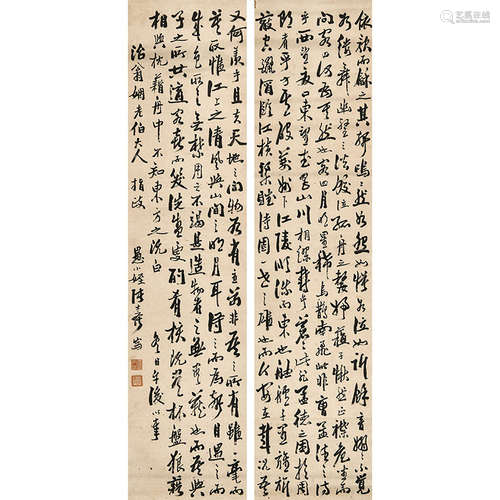 依歌而和之其聲嗚嗚然如怨如慕如泣如訴餘音嫋嫋不絕
如縷舞幽壑之潛蛟泣孤舟之嫠婦蘇子愀然正襟危坐而
問客何為其然也客曰月明星稀烏鵲南飛此非曹孟德之詩
乎西望夏口東望武昌山川相繆鬱乎蒼蒼此非孟德之困於周
郎者乎方其破荊州下江陵順流而東也舳艫千里旌旗
蔽空釃酒臨江橫槊賦詩固一世之雄也而今安在哉況吾
又何羨乎且夫天地之間物各有主苟非吾之所有雖一毫而
莫取惟江上之清風與山間之明月耳得之而為聲目遇之而
成色取之無禁用之不竭是造物者之無盡藏也而吾與
子之所共適客喜而笑洗盞更酌肴核既盡杯盤狼藉
相與枕藉舟中不知東方之既白
治翁姻老伯大人 指政
愚小姪
冬日午後